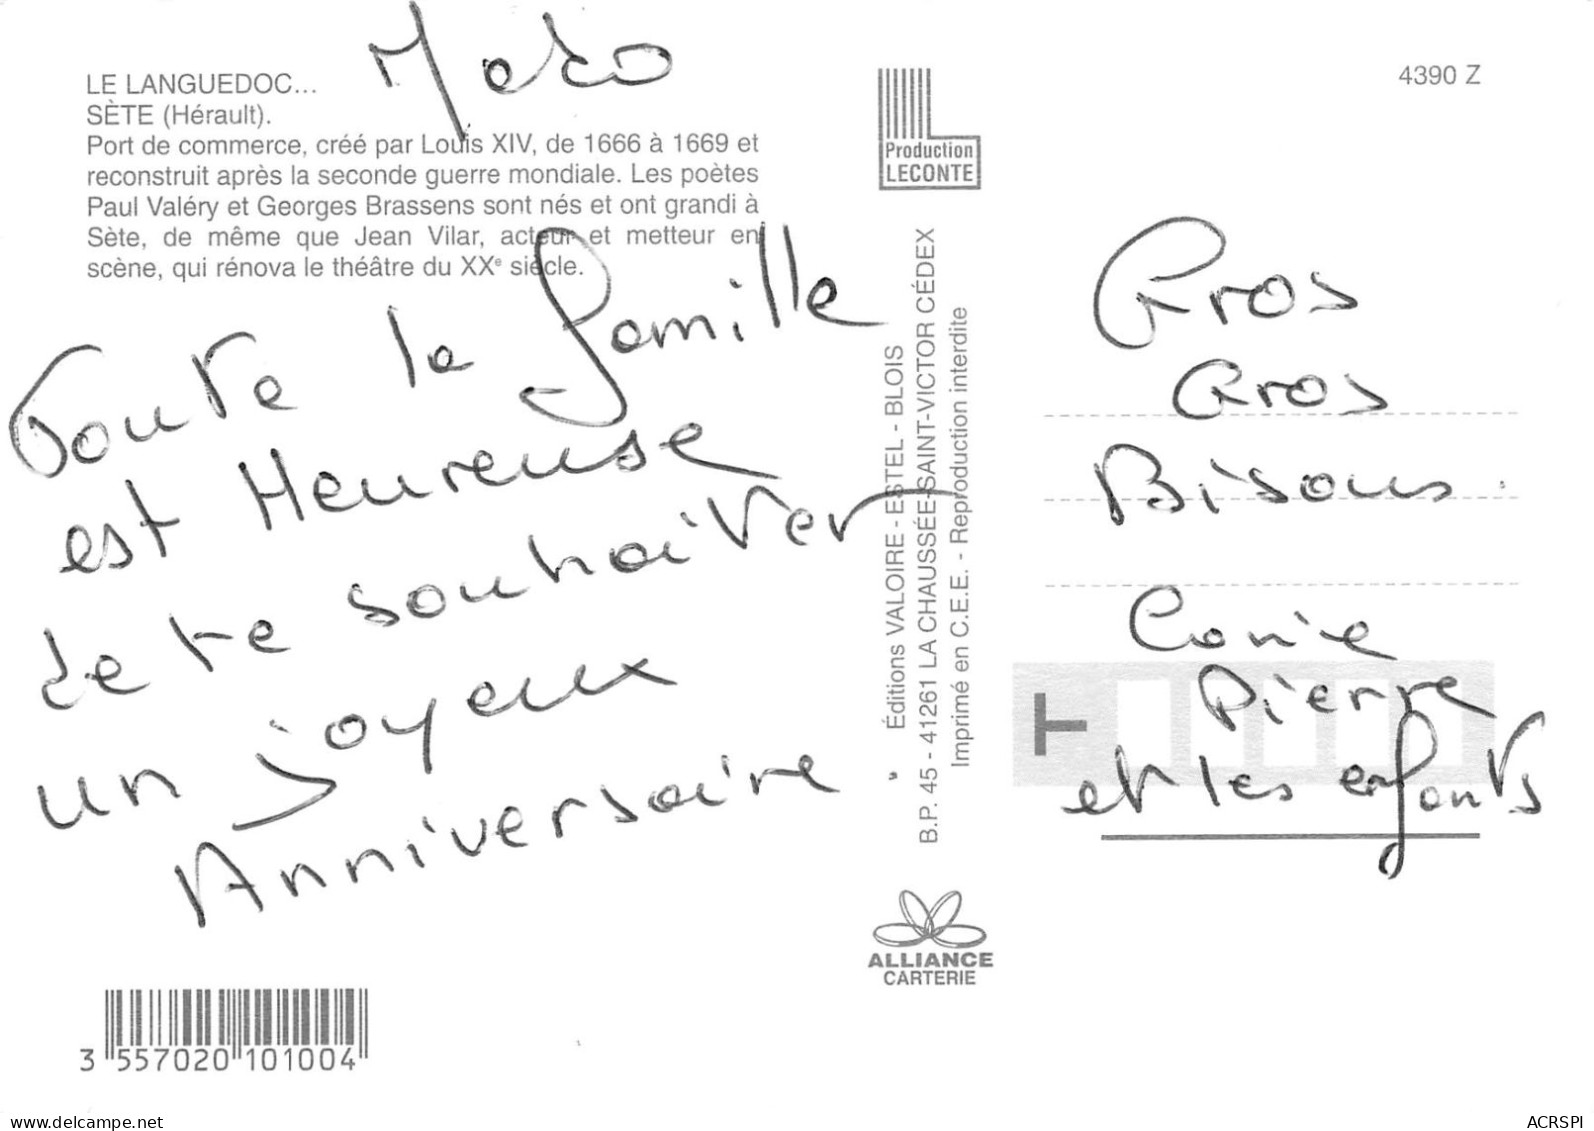 LE LANGUEDOC...
SÈTE (Hérault).
Port de commerce, créé par Louis XIV, de 1666 à 1669 et
reconstruit après la seconde guerre mondiale. Les poètes
Paul Valéry et Georges Brassens sont nés et ont grandi à
Sète, de même que Jean Vilar, acteur et metteur en
scène, qui rénova le théâtre du XXe siècle.
Toute la famille
est Heureuse
de te souhaiter
un joyeux
Anniversaire
3 557020 101004
Production
LECONTE
Éditions VALOIRE - ESTEL - BLOIS
B.P. 45 - 41261 LA CHAUSSÉE-SAINT-VICTOR CÉDEX
Imprimé en C.E.E. - Reproduction interdite
ALLIANCE
CARTERIE
4390 Z
Gros
Gros
Bisous.
Pierre
et les enfants
www.delcampe.net
ACRSPI